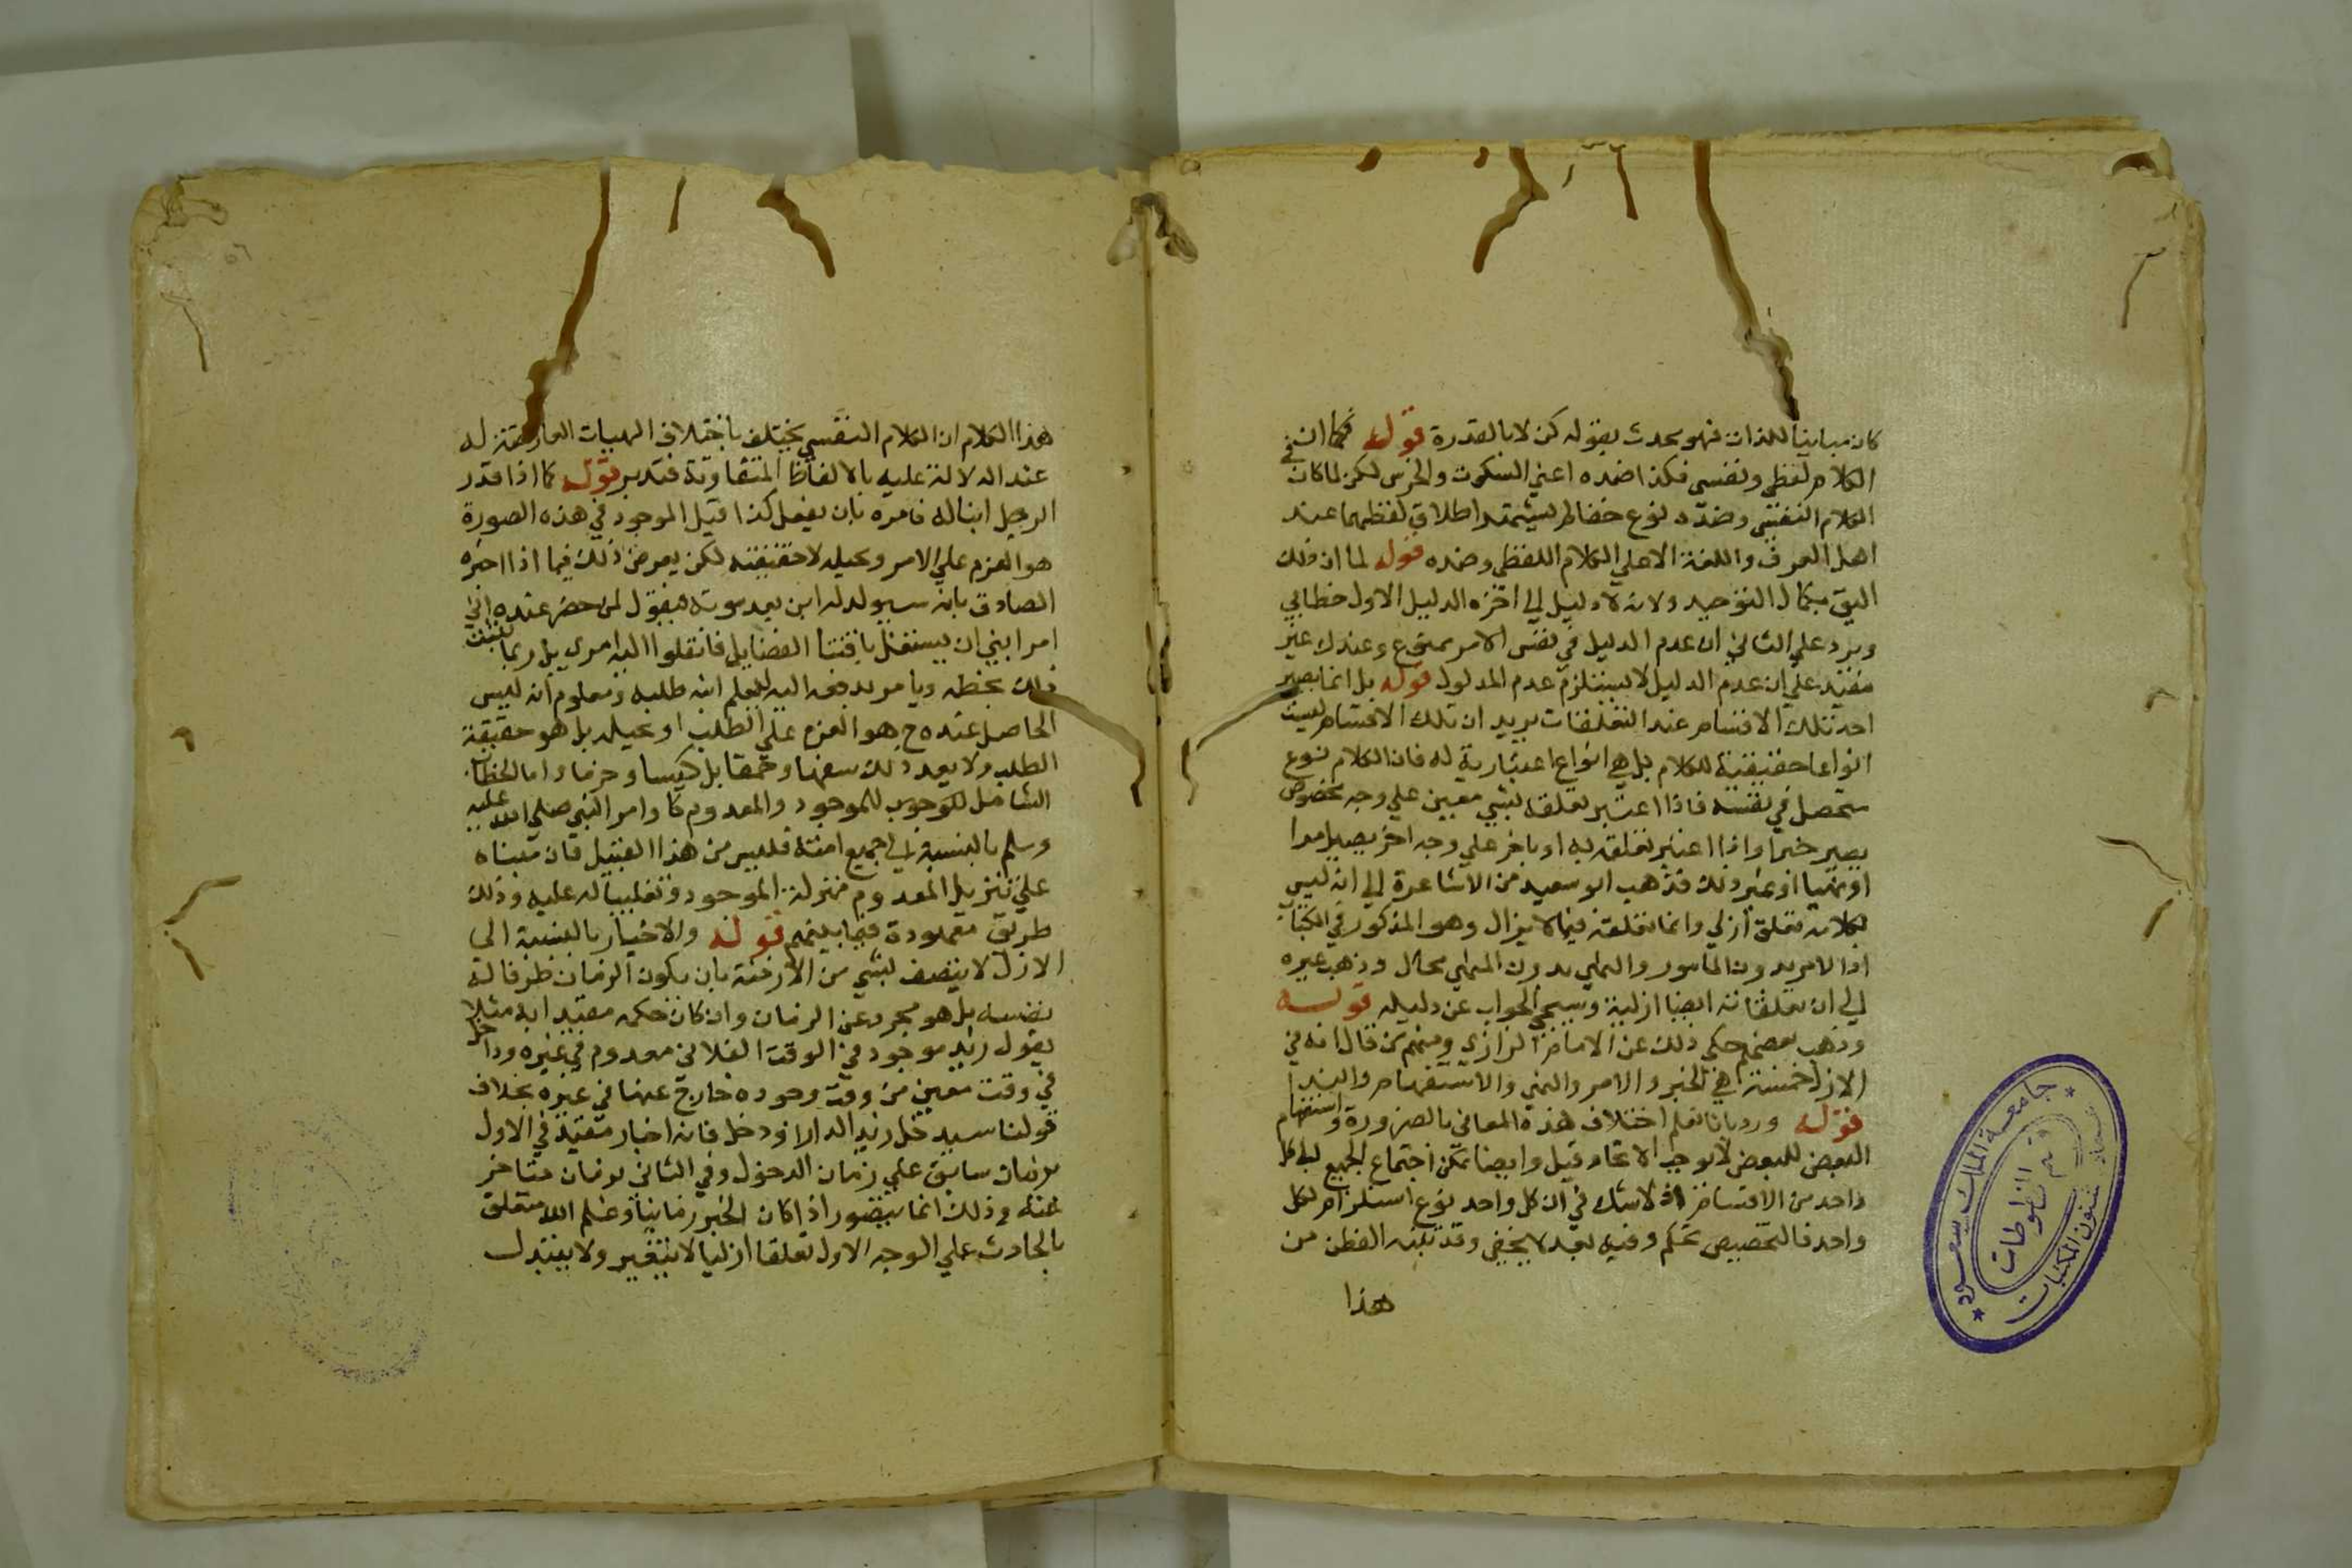 كان مباينا للذات فهو يحدث بقوله كن لا بالقدرة قوله فكما ان في
الكلام لفظي ونفسي فكذا ضده اعني السكوت والخرس لكن لما كان
الكلام النفسي وضده نوع خفا لم يشتهر اطلاق لفظهما عند
اهل العرف واللغة الا علي الكلام اللفظي وضده قوله لما ان ذلك
اليق بكمال التوحيد ولانه لا دليل الي اخره الدليل الاول خطابي
ويرد علي الثاني ان عدم الدليل في نفس الامر ممنوع وعندك غير
مفيد علي ان عدم الدليل لا يستلزم عدم المدلول قوله بل انما يصير
احد تلك الاقسام عند التعلقات يريد ان تلك الاقسام ليست
انواعا حقيقية للكلام بل هي انواع اعتبارية له فان الكلام نوع
متحصل في نفسه فاذا اعتبر تعلقه بشي معين علي وجه مخصوص
يصير خبرا واذا اعتبر تعلقه به او باخر علي وجه اخر يصير امرا
او نهيا او غير ذلك فذهب ابو سعيد من الاشاعرة الي انه ليس
لكلامه تعلق ازلي وانما تعلقه فيما لا يزال وهو المذكور في الكتاب
اذ الامر بدون المامور والنهي بدون المنهي محال وذهب غيره
الي ان تعلقاته ايضا ازلية وسيجي الجواب عن دليله قوله
وذهب بعضهم حكي ذلك عن الامام الرازي ومنهم من قال انه في
الازل خمسة هي الخبر والامر والنهي والاستفهام والندا
قوله ورد بانا نعلم اختلاف هذه المعاني بالضرورة واستلزام
البعض للبعض لا يوجب الاتحاد قيل وايضا يمكن اجتماع الجميع الي كل
واحد من الاقسام اذ لا شك في ان كل واحد نوع استلزام لكل
واحد فالتخصيص تحكم وفيه بعد لا يخفي وقد تنبه الفطن من
هذا
جامعة الملك سعود
قسم المخطوطات
عمادة شئون المكتبات
٥٦
هذا الكلام ان الكلام النفسي يختلف باختلاف الهيئات العارضة له
عند الدلالة عليه بالالفاظ المتفاوتة فتدبر قوله كما اذا قدر
الرجل ابنا له فامره بان يفعل كذا قيل الموجود في هذه الصورة
هو العزم علي الامر وتخيله لا حقيقته لكن يعرض ذلك فيما اذا اخبره
الصادق بانه سيولد له ابن بعد موته فيقول لمن حضر عنده اني
امر ابني ان يشتغل باقتنا الفضايل فانقلوا اليه امري بل ربما يكتب
ذلك بخطه ويامر بدفعه اليه ليعلم انه طلبه ومعلوم انه ليس
الحاصل عنده ح هو العزم علي الطلب او تخيله بل هو حقيقة
الطلب ولا يعد ذلك سفها وحمقا بل كيسا وحزما واما الخطاب
الشامل للموجود والمعدوم كاوامر النبي صلي الله عليه
وسلم بالنسبة الي جميع امته فليس من هذا القبيل فان مبناه
علي تنزيل المعدوم منزلة الموجود وتغليبا له عليه وذلك
طريق معهودة فيما بينهم قوله والاخبار بالنسبة الي
الازل لا يتصف بشي من الازمنة بان يكون الزمان ظرفا له
نفسه بل هو مجرد عن الزمان وان كان حكمه مقيدا به مثلا
يقول زيد موجود في الوقت الفلاني معدوم في غيره وداخل
في وقت معين من وقت وجوده خارج عنها في غيره بخلاف
قولنا سيدخل زيد الدار او دخل فانه اخبار مقيد في الاول
بزمان سابق علي زمان الدخول وفي الثاني بزمان متاخر
عنه وذلك انما يتصور اذا كان الخبر زمانيا وعلم الله متعلق
بالحادث علي الوجه الاول تعلقا ازليا لا يتغير ولا يتبدل